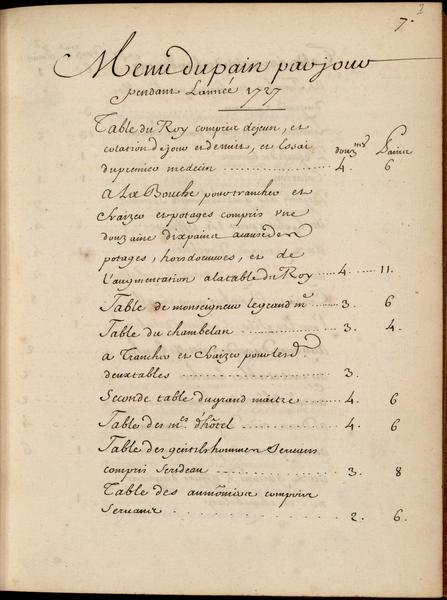 7.
Menu du pain par jour
pendant L'année 1727
Table du Roy compris dejeun, et
colation de jour et de nuit, et Essai douz.nes Pains
du premier medecin 4. 6
a La Bouche pour trancher et
et potages compris une
douzaine dix pains a cause des
potages, hors doeuvres, et de
l'augmentation a la table du Roy 4. 11.
Table de monseigneur le grand m.e 3. 6
Table du chambelan 3. 4.
a Trancher et pour les d.
deux tables 3.
Seconde table du grand maitre 4. 6
Tables des m.es d'hôtel 4. 6
Table des gentilshommes servans
compris Serdeau 3. 8
Table des aumôniers compris
servans 2. 6.